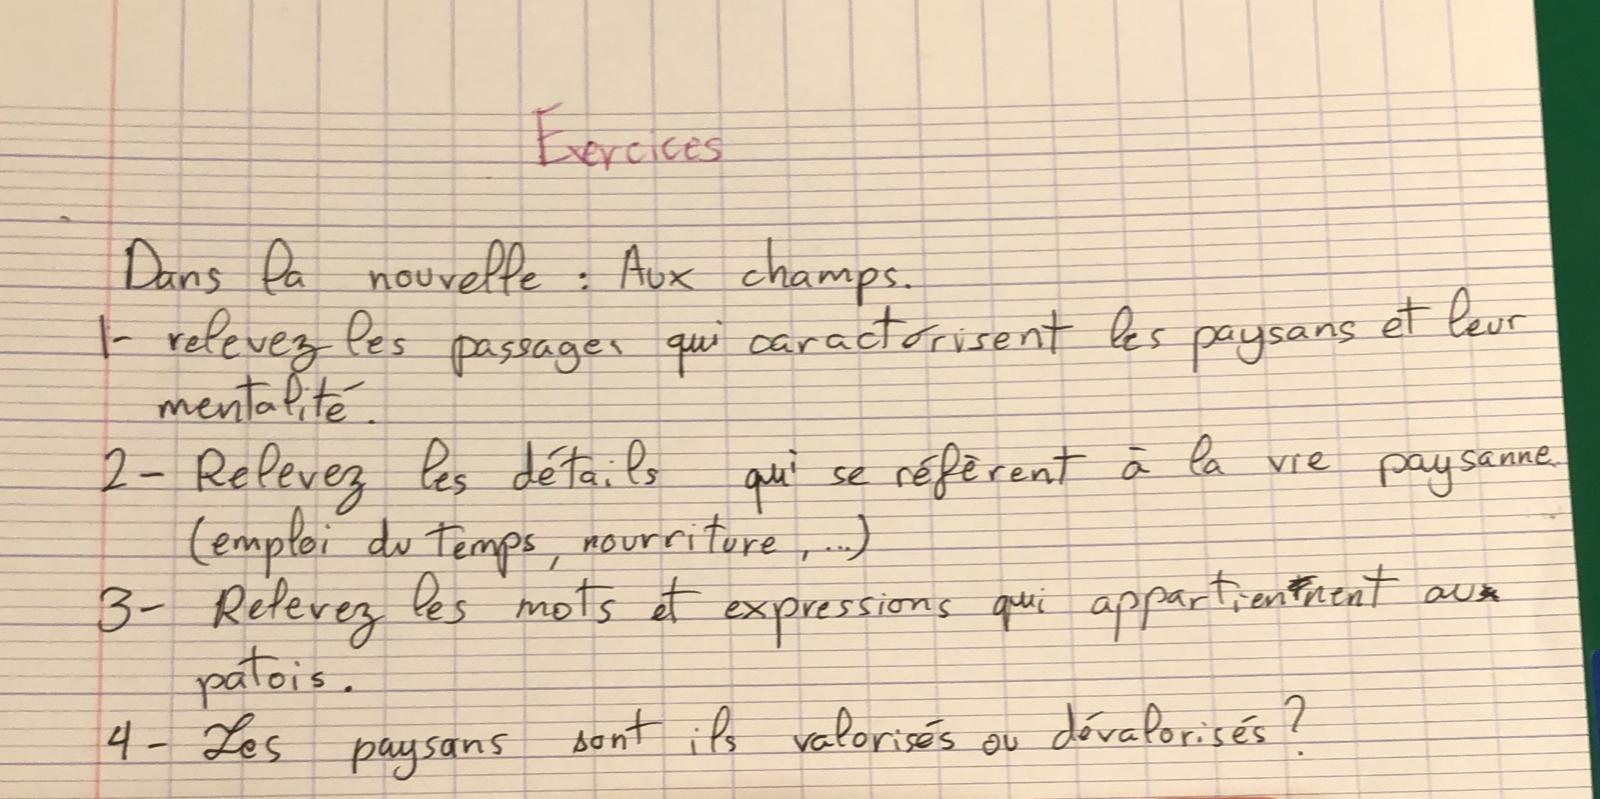 Exercices
Dans la nouvelle : Aux champs.
1- relevez les passages qui caractorisent les paysans et leur
mentalité.
2- Relevez les détails qui se réfèrent à la vie paysanne.
(emploi du temps, nourriture, ...)
3- Relevez les mots et expressions qui appartiennent aux
patois.
4- Les paysans sont ils valorisés ou dévalorisés ?